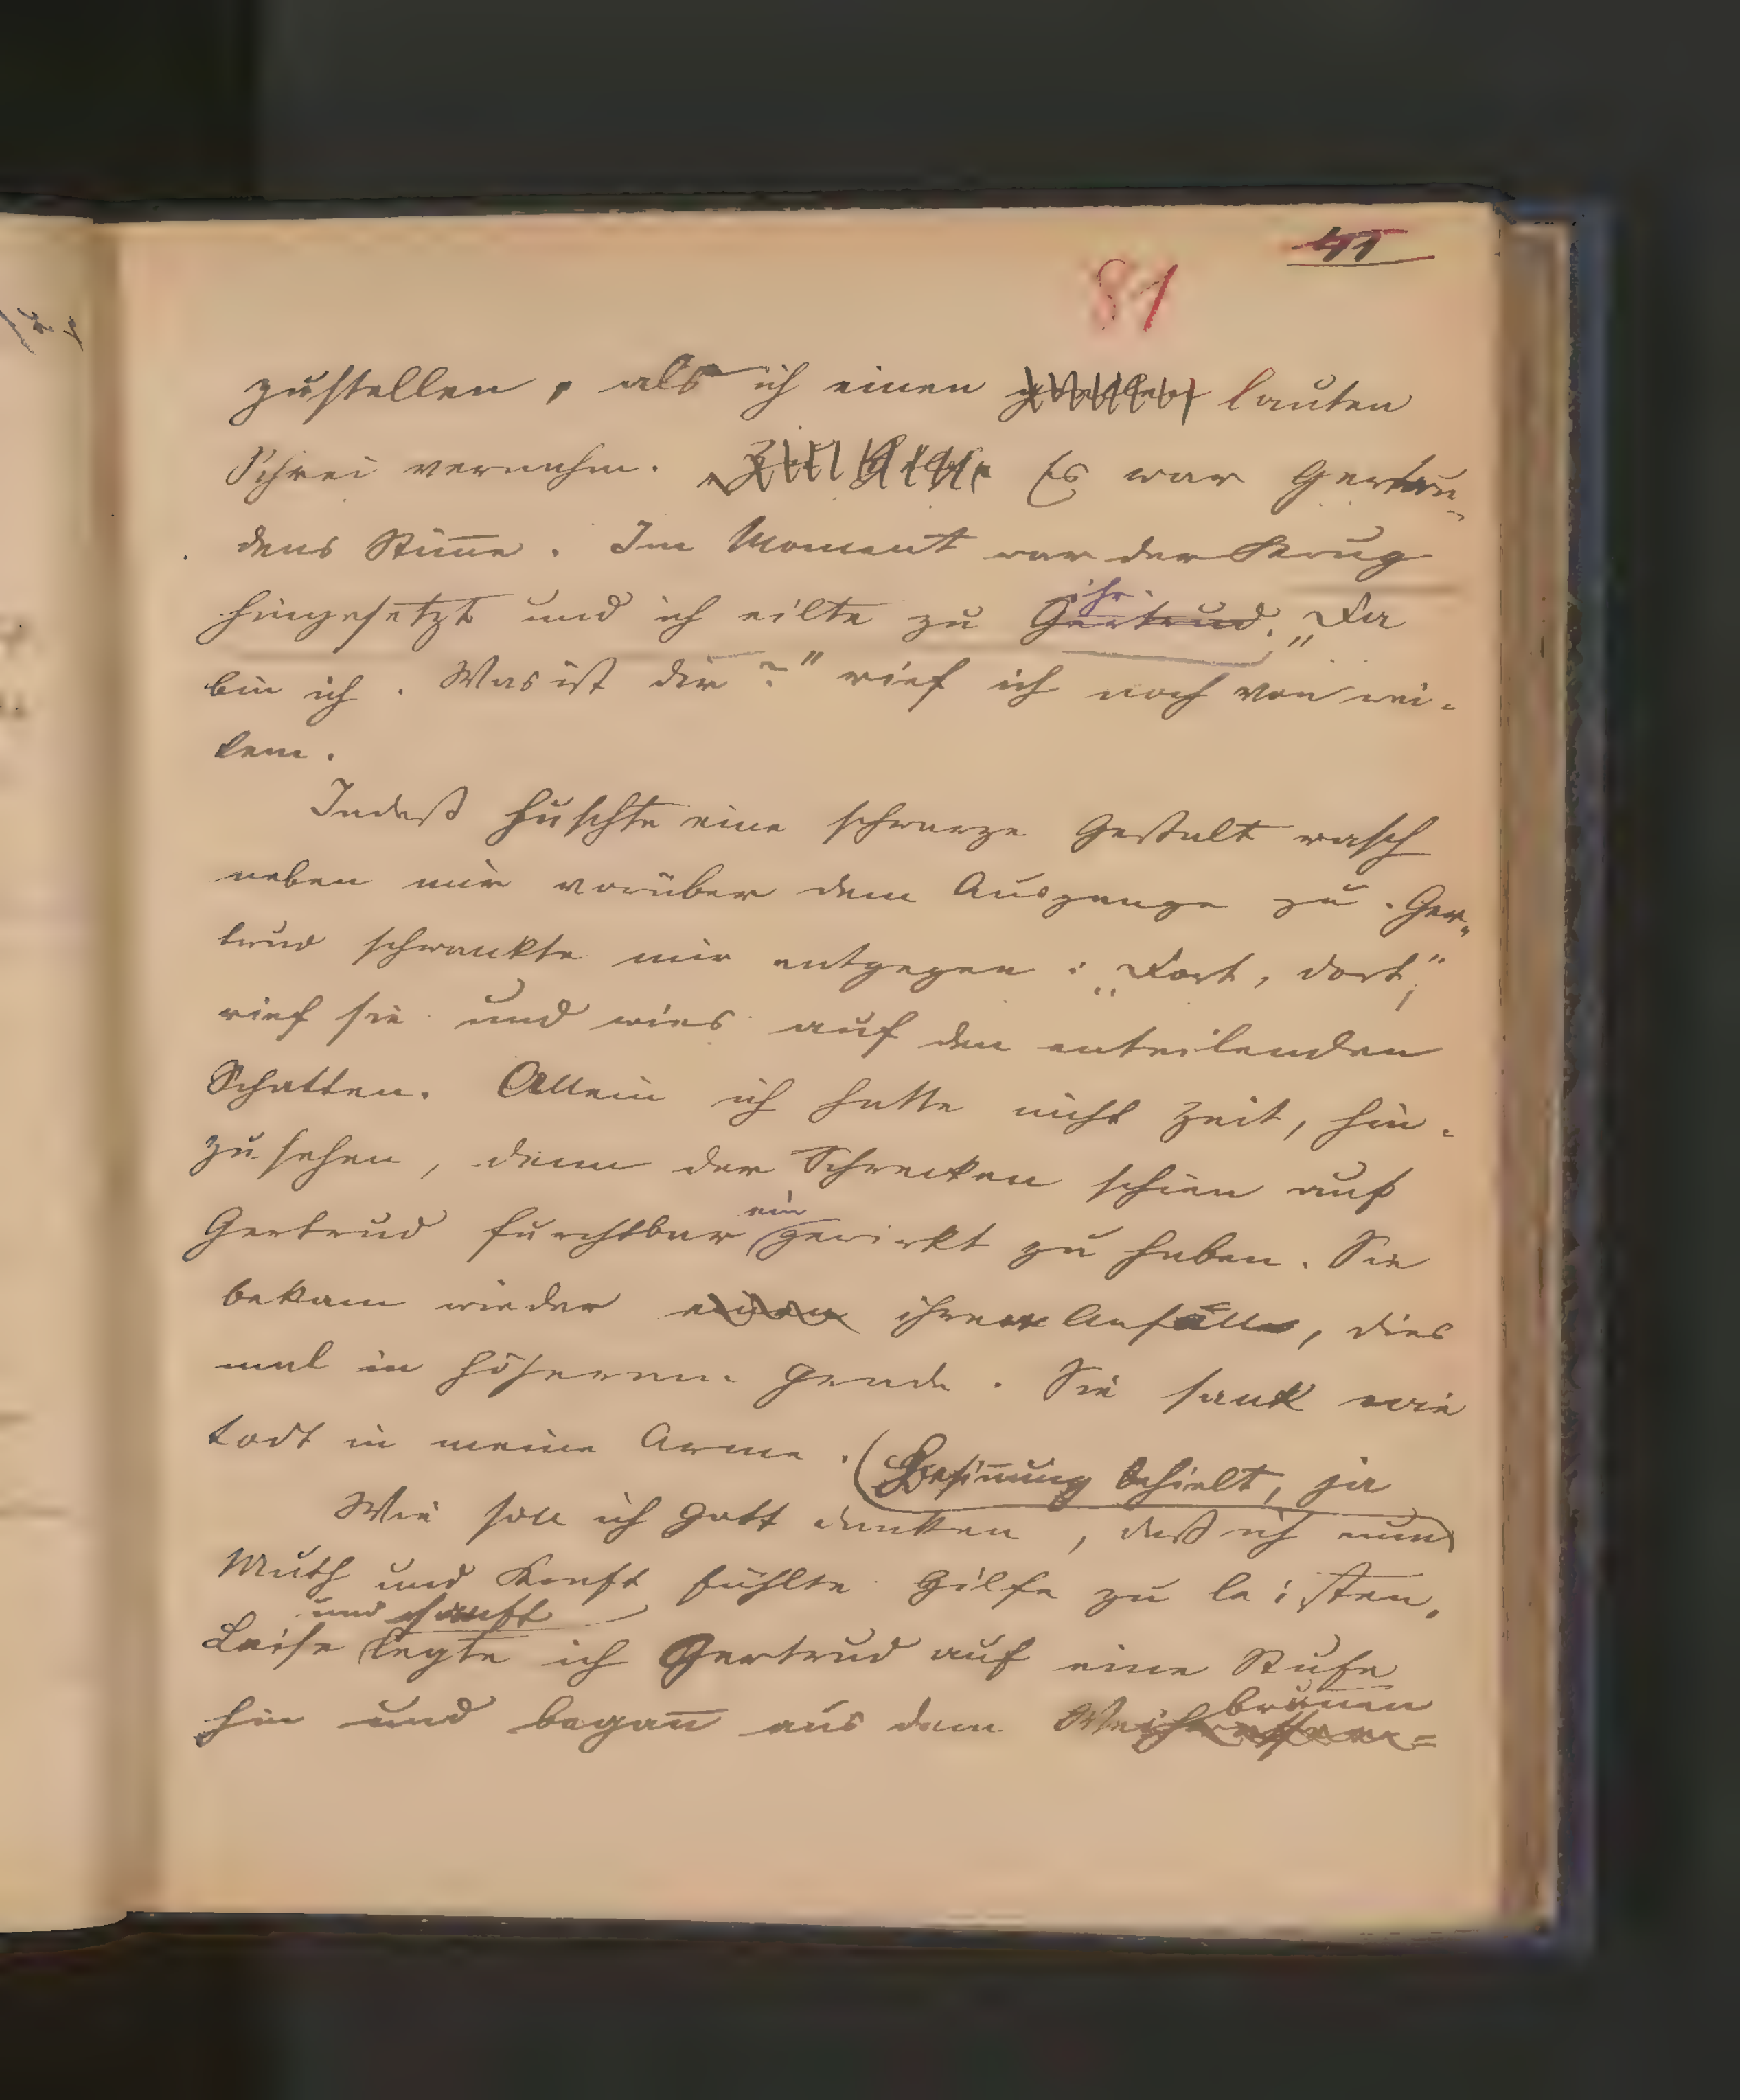 41
81
zustellen, als ich einen lauten
Schrei vernahm. Es war Gertru-
dens Stim̅e. Im Moment war der Krug
hingesetzt und ich eilte zu Gertrud. „Da
ihr.
bin ich. Was ist dir?" rief ich noch von wei-
tem.
Indeß huschte eine schwarze Gestalt rasch
neben mir vorüber dem Ausgange zu. Ger-
trud schwankte mir entgegen: „Dort, dort,"
rief sie und wies auf den enteilenden
Schatten. Allein ich hatte nicht Zeit, hin-
zusehen, denn der Schrecken schien auf
ein
Gertrud furchtbar gewirkt zu haben. Sie
bekam wieder einen ihrer Anfälle, dies
mal in höherem Grade. Sie sank wie
todt in meine Arme.
(Besin̅ung behielt, ja
Wie soll ich Gott danken, daß ich nun
Muth und Kraft fühlte Hilfe zu leisten.
und sanft
Leise legte ich Gertrud auf eine Stufe
brun̅en
hin und began̅ aus dem Weihwasser=